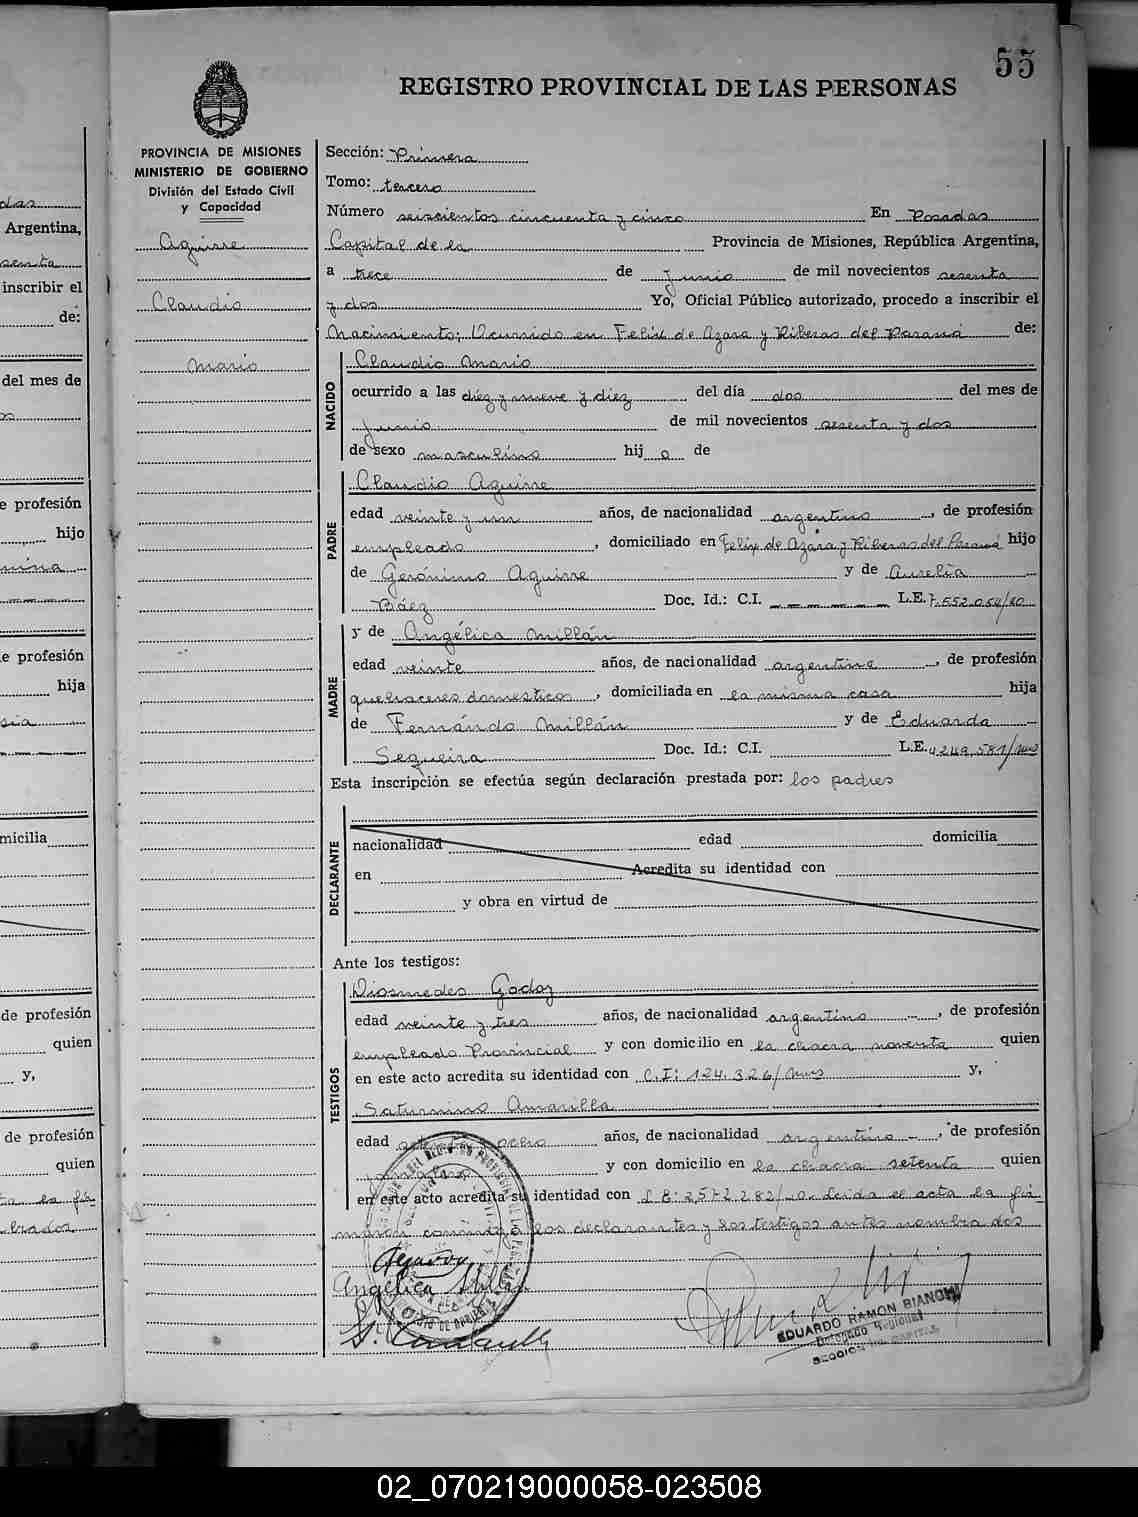 55
REGISTRO PROVINCIAL DE LAS PERSONAS
PROVINCIA DE MISIONES
MINISTERIO DE GOBIERNO
División del Estado Civil
y Capacidad
Aguirre
Claudio
Mario
Sección: Primera
Tomo: tercero
Número seiscientos cincuenta y cinco En Posadas
Capital de la Provincia de Misiones, República Argentina,
a trece de Junio de mil novecientos sesenta
y dos Yo, Oficial Público autorizado, procedo a inscribir el
Nacimiento; Ocurrido en Felix de Azara y Riberas del Paraná de:
NACIDO
Claudio Mario
ocurrido a las diez y nueve y diez del día dos del mes de
Junio de mil novecientos sesenta y dos
de sexo masculino hij o de
PADRE
Claudio Aguirre
edad veinte y un años, de nacionalidad argentino, de profesión
empleado, domiciliado en Felix de Azara y Riberas del Paraná hijo
de Gerónimo Aguirre y de Aurelia
Báez Doc. Id.: C.I. L.E. 7.552.054/40
MADRE
y de Angélica Millán
edad veinte años, de nacionalidad argentina, de profesión
quehaceres domesticos, domiciliada en la misma casa hija
de Fernándo Millán y de Eduarda
Segueira Doc. Id.: C.I. L.E. 4249.581/Mns
Esta inscripción se efectúa según declaración prestada por: los padres
DECLARANTE
nacionalidad edad domicilia
en Acredita su identidad con
y obra en virtud de
Ante los testigos:
TESTIGOS
Diosmedes Godoy
edad veinte y tres años, de nacionalidad argentino, de profesión
empleado Provincial y con domicilio en la chacra noventa quien
en este acto acredita su identidad con C.I: 124.326/Mns y,
Saturnino Amarilla
edad ocho años, de nacionalidad argentino, de profesión
y con domicilio en la chacra setenta quien
en este acto acredita su identidad con L.E: 2.572.282/ leida el acta la fir-
man conmigo los declarantes y los testigos antes nombrados
Angélica Millán
EDUARDO RAMON BIANCHI
Delegado Regional
Argentina,
inscribir el
de:
del mes de
de profesión
hijo
de profesión
hija
micilia
de profesión
quien
y,
de profesión
quien
02_070219000058-023508